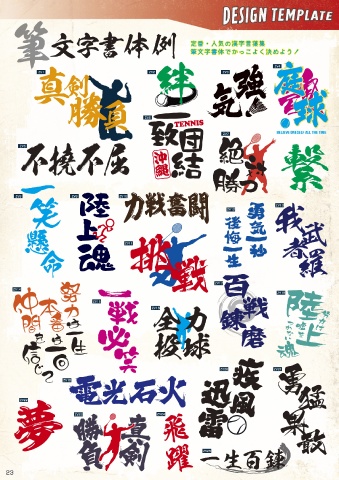 DESIGN TEMPLATE
筆文字書体例
定番・人気の漢字言葉集
筆文字書体でかっこよく決めよう！
真剣勝負
絆
強気！
庭球
TENNIS
一致団結
沖縄
不撓不屈
絶対勝つ
繋
一笑懸命
陸上魂
力戦奮闘
挑戦
勇気一秒
後悔一生
我武者羅
努力は一生
本番は一回
仲間を信じて
一戦必笑
全力投球
百戦錬磨
陸上
電光石火
疾風迅雷
勇猛果敢
夢
真剣勝負
飛躍
一生百錬
23